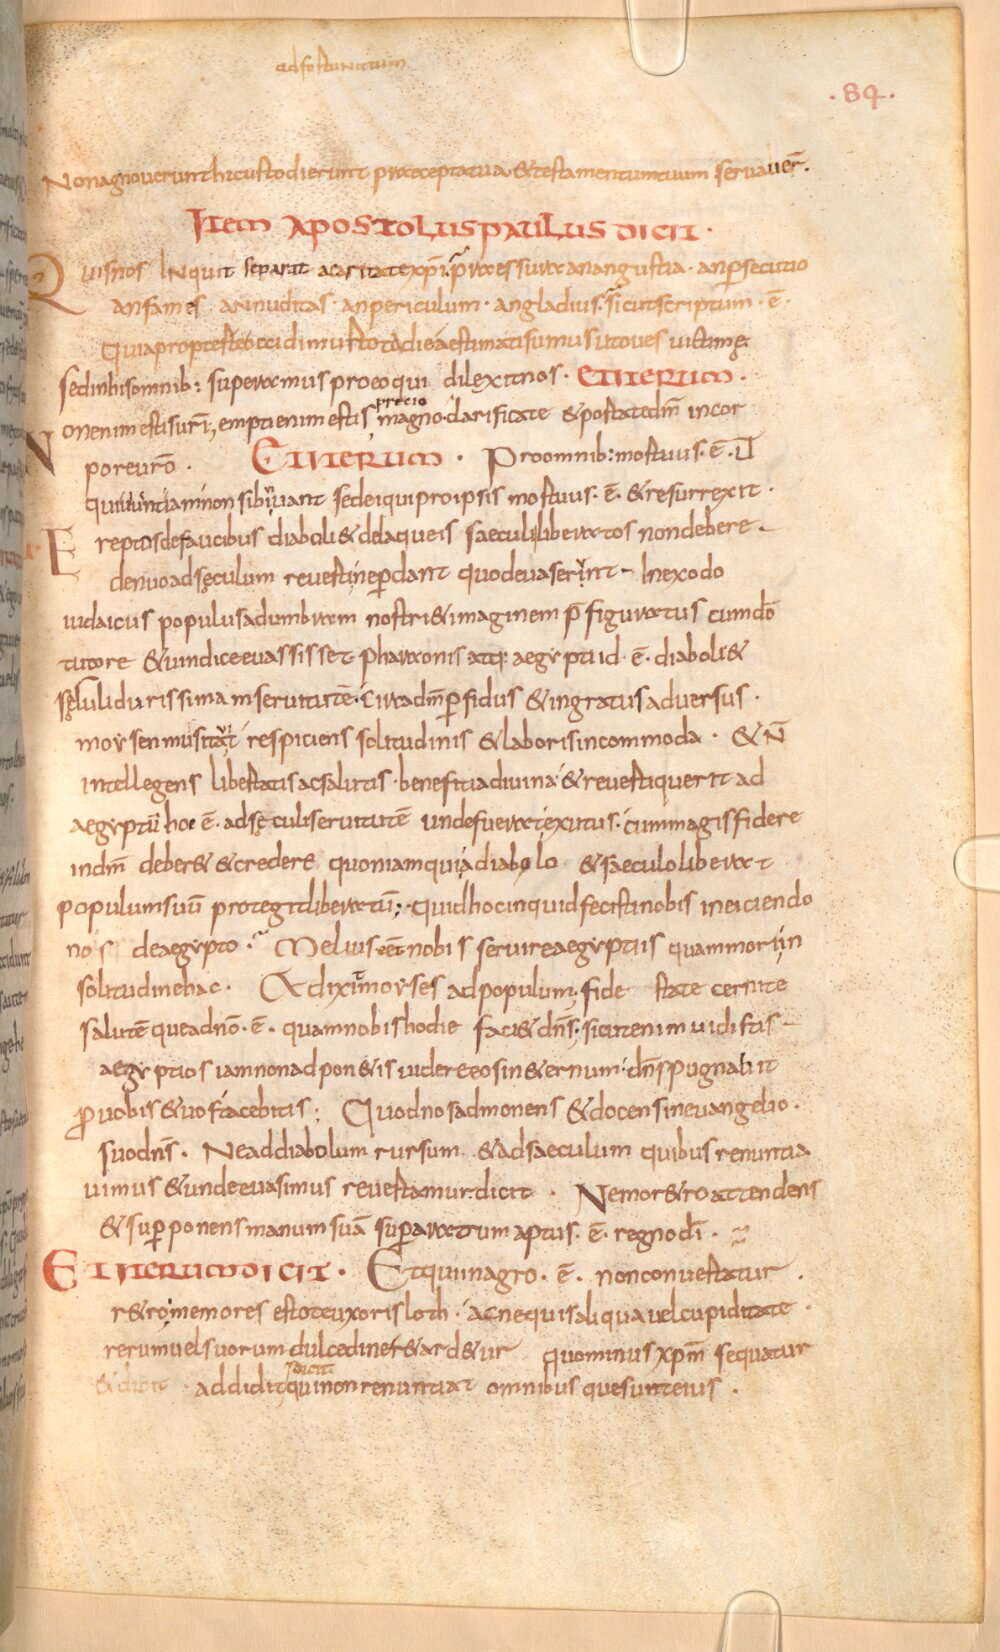 ad fortunatum
.84.
Non agnoverunt hi custodierunt praecepta tua & testamentum tuum servaver̄.
Item apostolus paulus dicit.
Quis nos inquit separat a caritate xp̄i. pressura an angustia. an p̄secutio
an fames an nuditas. an periculum. an gladius. sicut scriptum. ē.
Quia propter te occidimur tota die aestimati sumus ut oves victimę
sed in his omnib: superamus pro eo qui dilexit nos. Et iterum.
Non enim estis ur̄i, empti enim estis precio magno. clarificate & portate dm̄ in cor
pore ur̄o. Et iterum. Pro omnib: mortuus. ē. ut
qui vivunt iam non sibi vivant sed ei qui pro ipsis mortuus. ē. & resurrexit.
Ereptos de faucibus diaboli & de laqueis saeculi liberatos non debere
denuo ad sęculum reverti ne perdant quod evaserint. In exodo
iudaicus populus ad umbram nostri & imaginem p̄figuratus cum dō
tutore & vindice evassisset pharaonis atq: aegyptii id. ē. diaboli &
sęculi durissimam servitutē. circa dm̄ perfidus & ingratus adversus.
moysen musitat respiciens solitudinis & laboris incommoda. & n̄
intellegens libertatis ac salutis benefitia divina & reverti querit ad
aegyptū hoc ē. ad sęculi servitutē unde fuerat exutus. cum magis fidere
in dm̄ deber& & credere quoniam qui a diabolo & saeculo liberat
populum suū protegit liberatū; quid hoc inquid fecisti nobis in eiciendo
nos de aegypto. Melius est nobis servire aegyptiis quam mori in
solitudine hac. Et dixit moyses ad populum. fide state cernite
salutē que a dnō. ē. quam nobis hodie faci& dn̄s; sicut enim vidistis
aegyptios iam non adpon&is videre eos in &ernum. dn̄s pugnabit
p̄ vobis & vos tacebitis; Quod nos admonens & docens in evangelio.
suo dn̄s. Ne ad diabolum rursum & ad saeculum quibus renuntia
vimus & unde evasimus revertamur. dicit. Nemo r&ro attendens
& superponens manum suā super aratrum aptus. ē. regno dī.
Et iterum dicit. Et qui in agro. ē. non convertatur.
r&ro. memores estote uxoris loth. ac ne quis aliqua vel cupiditate.
rerum vel suorum dulcedine r&ard&ur quominus xpm̄ sequatur
& dicit. addidit dicit qui non renuntiat omnibus que sunt eius.